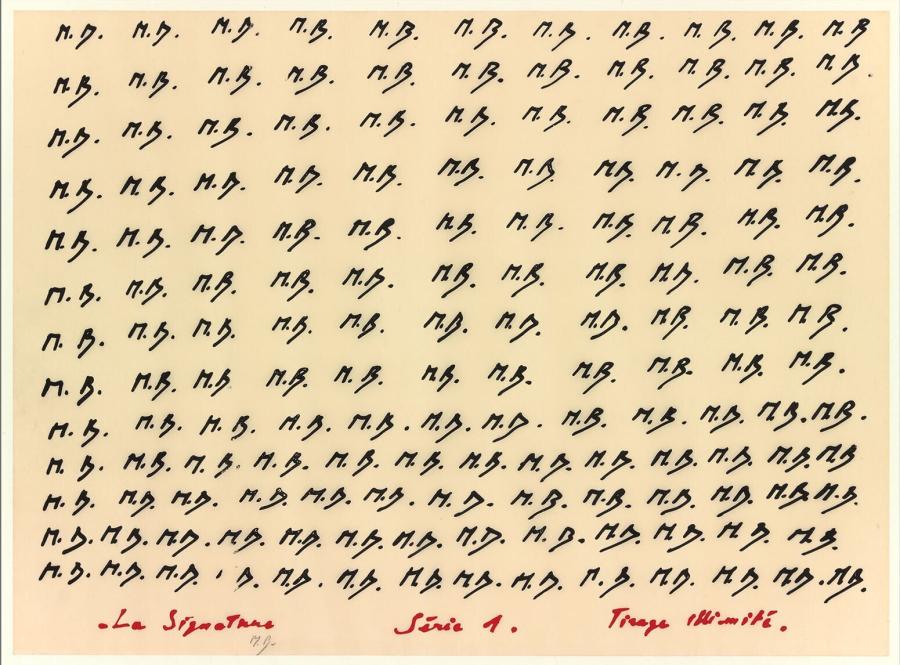 M.B. M.B. M.B. M.B. M.B. M.B. M.B. M.B. M.B. M.B. M.B
M.B. M.B. M.B. M.B. M.B. M.B. M.B. M.B. M.B. M.B. M.B.
M.B. M.B. M.B. M.B. M.B. M.B. M.B. M.B. M.B. M.B. M.B.
M.B. M.B. M.B. M.B. M.B. M.B. M.B. M.B. M.B. M.B. M.B.
M.B. M.B. M.B. M.B. M.B. M.B. M.B. M.B. M.B. M.B. M.B.
M.B. M.B. M.B. M.B. M.B. M.B. M.B. M.B. M.B. M.B. M.B.
M.B. M.B. M.B. M.B. M.B. M.B. M.B. M.B. M.B. M.B. M.B.
M.B. M.B. M.B. M.B. M.B. M.B. M.B. M.B. M.B. M.B. M.B.
M.B. M.B. M.B. M.B. M.B. M.B. M.B. M.B. M.B. M.B. M.B. M.B.
M.B. M.B. M.B. M.B. M.B. M.B. M.B. M.B. M.B. M.B. M.B. M.B. M.B
M.B. M.B. M.B. M.B. M.B. M.B. M.B. M.B. M.B. M.B. M.B. M.B. M.B.
M.B. M.B. M.B. M.B. M.B. M.B. M.B. M.B. M.B. M.B. M.B. M.B. M.B.
M.B. M.B. M.B. B. M.B. M.B. M.B. M.B. M.B. M.B. M.B. M.B. M.B. M.B.
La Signature Série 1. Tirage illimité.
M.B.